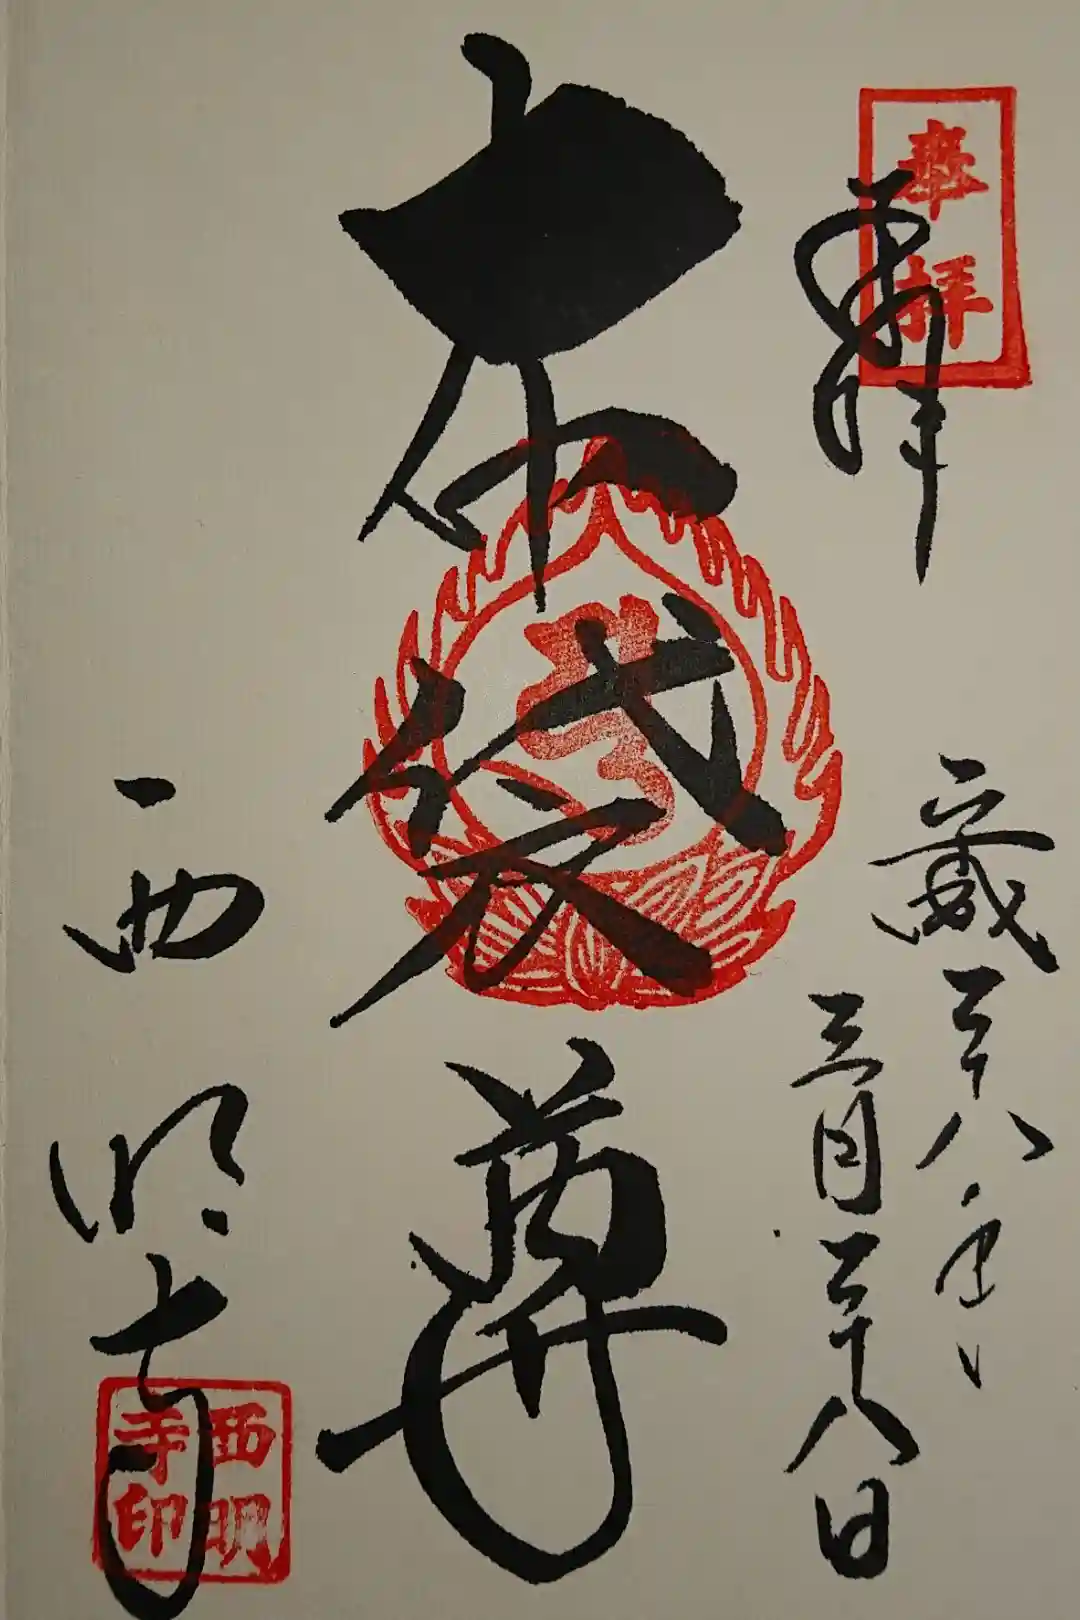 奉拝
奉拝
平成二十八年
三月二十八日
布袋尊
西明寺
西明
寺印